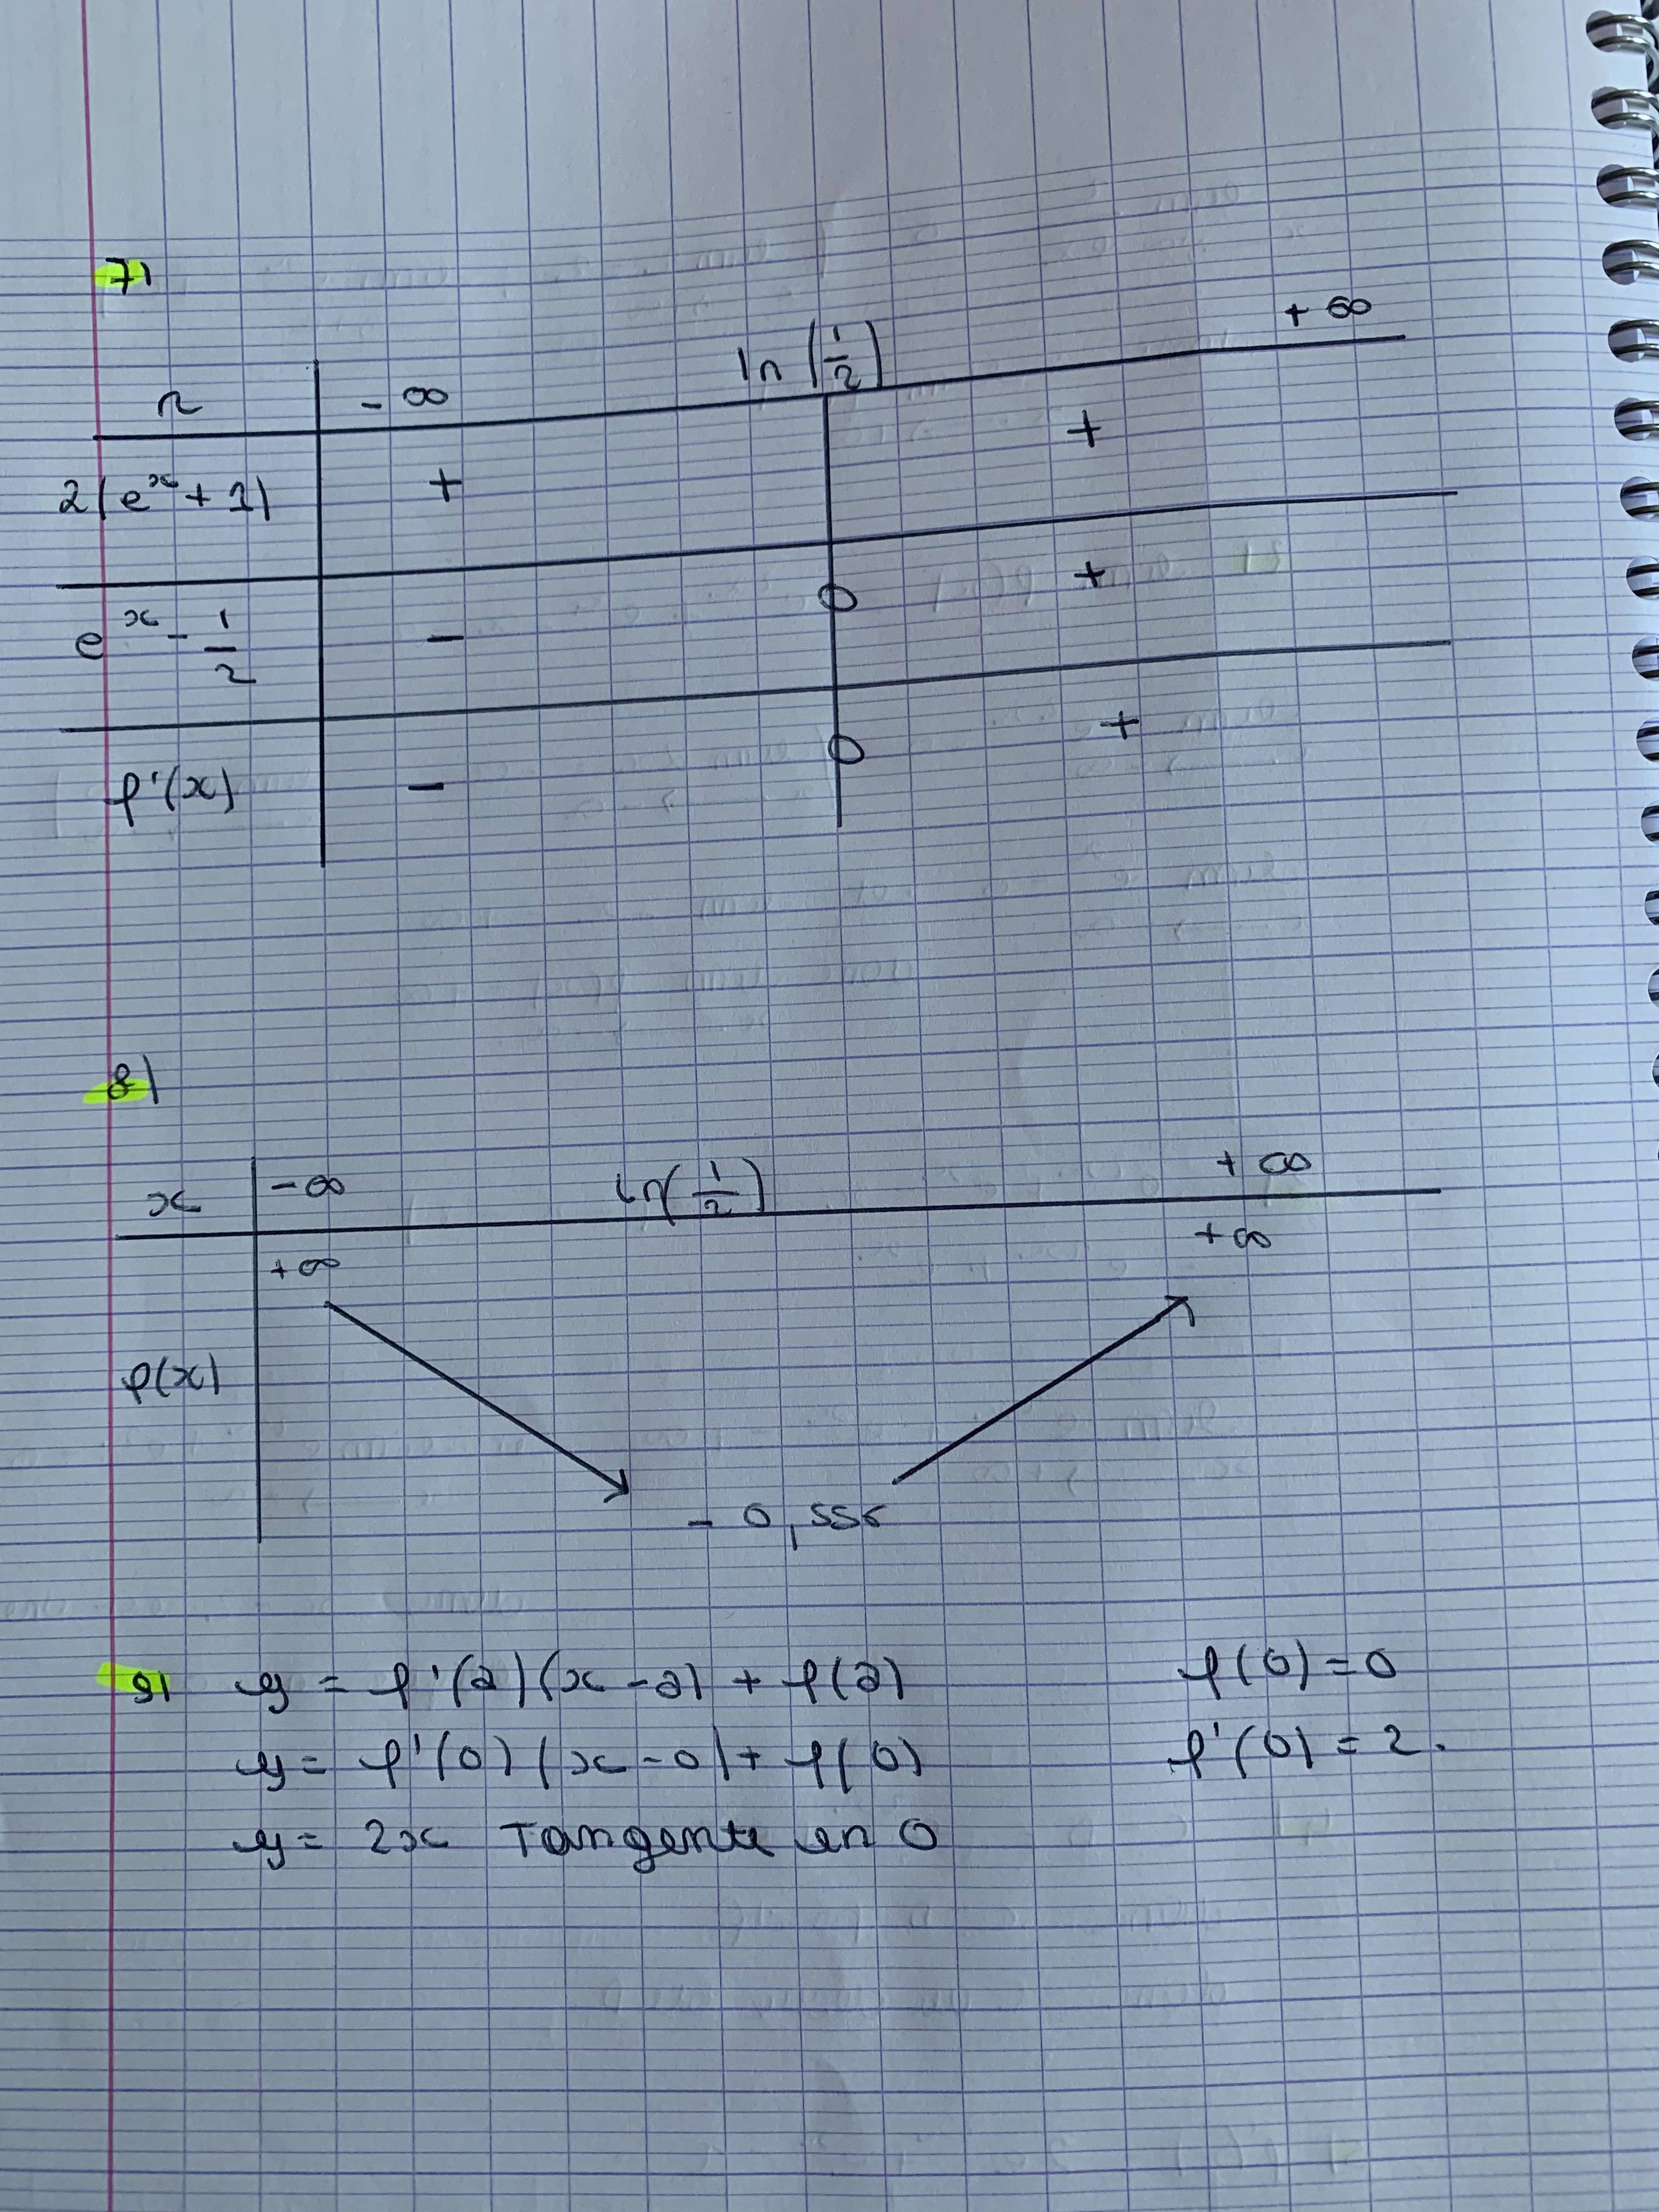 7)
x -∞ ln(1/2) +∞
2(e^x + 1) + +
e^x - 1/2 - 0 +
f'(x) - 0 +
8)
x -∞ ln(1/2) +∞
+∞ +∞
f(x)
- 0,556
9) y = f'(a)(x - a) + f(a) f(0) = 0
y = f'(0)(x - 0) + f(0) f'(0) = 2.
y = 2x Tangente en 0